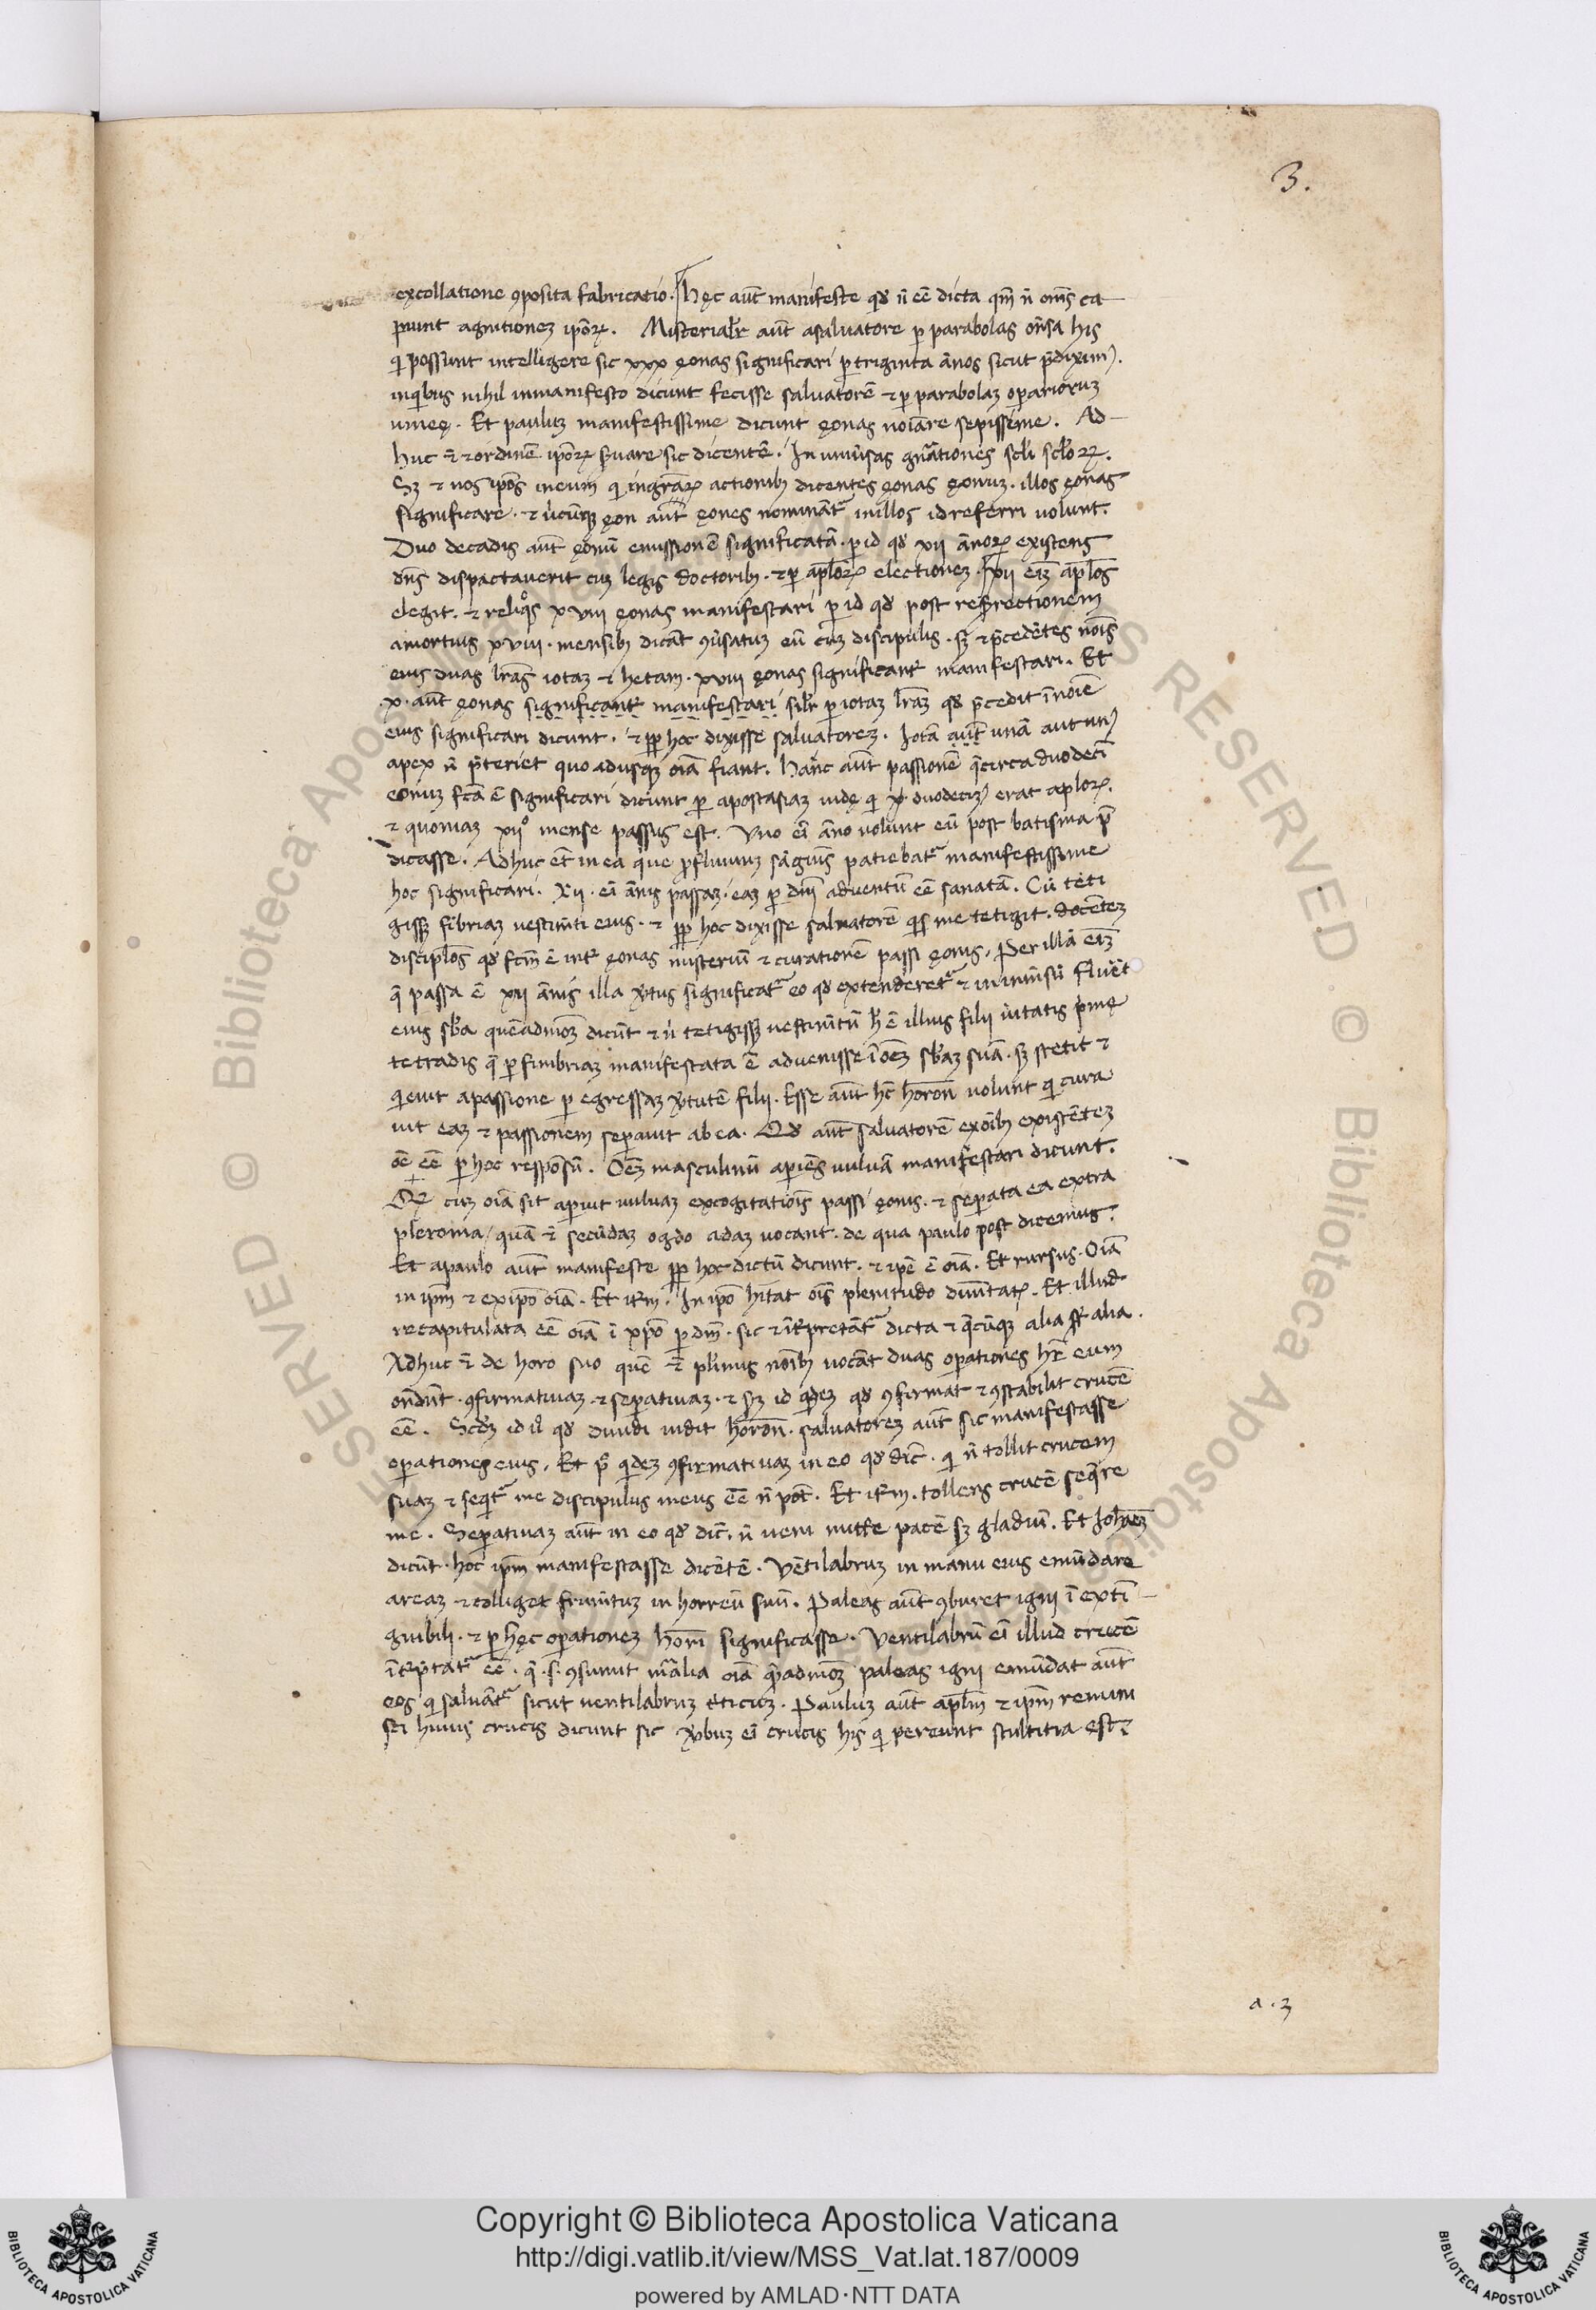 3.
excollatione ꝯposita fabricatio. hęc aut̄ manifeste qď n̄ eē dicta qm̄ n̄ om̄s ca
piunt agnitionez ipōꝝ. Misterialr̄ aut̄ asaluatore ꝑ parabolas on̄sa his
qi possunt intelligere sic xxx ęonas significari ꝑ triginta ānos sicut p̄dixim᾽.
inqibus nihil inmanifesto dicunt fecisse saluatorē ⁊ ꝑ parabolaz operiorum
uineę. Et pauluz manifestissime dicunt ęonas noīare sepissime. Ad
huc ⁊̄ ⁊ordinē ipōꝝ ẜuare sic dicentē. In uniūsas gn̄ationes scl̄i scl̄oꝝ.
Sꝫ ⁊ nos ipōs ineum qi ingrāꝝ actionibꝫ dicentes ęonas ęonuz. illos ęonas
significare. ⁊ ūicūqꝫ ęon aut̄ ęones nominānt̄ inillos idreferri uolunt.
Duo decadis aut̄ ęonū emissionē significatā. ꝑ id qď xii ānoꝝ existens
dn̄s disputauerit cuz legis doctoribꝫ. ⁊ ꝑ apl̄oꝝ electionez. xii eīz apl̄os
elegit. ⁊ reliqͦs xviii ęonas manifestari ꝑ id qď post resurectionem
amortuis xviii. mensibꝫ dicāt ꝯūsatuz eū cuz discipulis. sꝫ ⁊ p̄cedētes nōis
eius duas lr̄as iotaz ⁊ hetam. xviii ęonas significant̄ manifestari. Et
x. aut̄ ęonas significant̄ manifestari silr̄ ꝑ iotaz lr̄az qď p̄cedit īnoīe
eius significari dicunt. ⁊ ꝓp hoc dixisse saluatorez. Iotā aut̄ unā aut un᾽
apex n̄ p̄teriet quo adusqꝫ oīa fiant. hanc aut̄ passionē q̄circa duodecī
eonuz fcā ē significari dicunt ꝑ apostasiaz iudę qi duodeciz᾽ erat aplōꝝ.
⁊ quoniaz xiiͦ mense passus est. Uno eī āno uolunt eū post batisma p̄
dicasse. Adhuc et̄ in ea que ꝓfluuiuz sāguīs patiebat̄ manifestissime
hoc significari. Xii. eī ānis passaz. eaz ꝑ dn̄i aduentū eē sanatā. Cū teti
gissꝫ fibriaz uestimīti eius. ⁊ ꝓp hoc dixisse saluatorē qis me tetigit. docētez
discipl̄os qď fcm̄ ē int̄ ęonas misteriū ⁊ curationē passi ęonis. Per illā eīz
q̄ passa ē xii ānis illa v̄tus significat̄ eo qď extenderet̄ ⁊ ininmīsū fluēt
eius sb̄a quēadmoz dicūt ⁊ n̄ tetigissꝫ uestimītū h̄ ē illius filii ūitatis p̄mę
tetradis q̄ ꝑ fimbriaz manifestata ē aduenisse īoēz sb̄az suā. sꝫ stetit ⁊
qieuit apassione ꝑ egressaz v̄tutē filii. Esse aut̄ hc̄ horon̄ uolunt qi cura
uit eaz ⁊ passionem seꝑauit abea. Qď aut̄ saluatorē exoībꝫ existētez
oē eē ꝑ hoc respōsū. Oēz masculinū aꝑiēs uuluā manifestari dicunt.
Qi cuz oīa sit aꝑuit uuluaz excogitatiōis passi ęonis. ⁊ seꝑata ea extra
pleroma/ quā ⁊̄ secūdaz ogdo adaz uocant. de qua paulo post dicemus.
Et apaulo aut̄ manifeste ꝓp hoc dictū dicunt. ⁊ ipē ē oīa. Et rursus. Oīa
in ipm̄ ⁊ exipō oīa. Et itm̄. In ipō hītat oīs plenitudo diuīitatꝭ. Et illud
recapitulata eē oīa ī xp̄o ꝑ dm̄. sic ⁊ int̄pretant̄ dicta ⁊ q̄cūqꝫ alia st̄ alia.
Adhuc ⁊̄ de horo suo quē ⁊̄ plīmis noībꝫ uocāt duas oꝑationes hr̄e eum
on̄dūt. ꝯfirmatiuaz ⁊ seꝑatiuaz. ⁊ sꝫ id qidez qď ꝯfirmat ⁊ ꝯstabilit crucē
eē. Scdꝫ id ū qď diuidi uidit horon̄. saluatorez aut̄ sic manifestasse
oꝑationes eius. Et p̄ qidez ꝯfirmatiuaz in eo qď dic̄. qi n̄ tollit crucem
suaz ⁊ seqit̄ me discipulus meus eē n̄ pōt. Et itm̄. tollens crucē seqēre
me. Seꝑatiuaz aut̄ in eo qď dic̄. n̄ ueni mitt̄e pacē sꝫ gladiū. Et Joh̄ez
dicūt. hoc ipm̄ manifestasse dicētē. Vētilabruz in manu eius emūdare
areaz ⁊ colliget frumītuz in horreū suū. Paleas aut̄ ꝯburet igni ī extī
guibili. ⁊ ꝑ hęc oꝑationez horī significasse. Ventilabrū eī illud crucē
int̄p̄tat̄ eē. q̄. s. ꝯsumit mālia oīa q̄admoz paleas igni emūdat aut̄
eos qi saluāt̄ sicut uentilabruz triticuz. Pauluz aut̄ apl̄m ⁊ ipm̄ remini
sci huius crucis dicunt sic v̄buz eī crucis his qi pereunt stultitia est
a.3
Copyright © Biblioteca Apostolica Vaticana
http://digi.vatlib.it/view/MSS_Vat.lat.187/0009
powered by AMLAD·NTT DATA